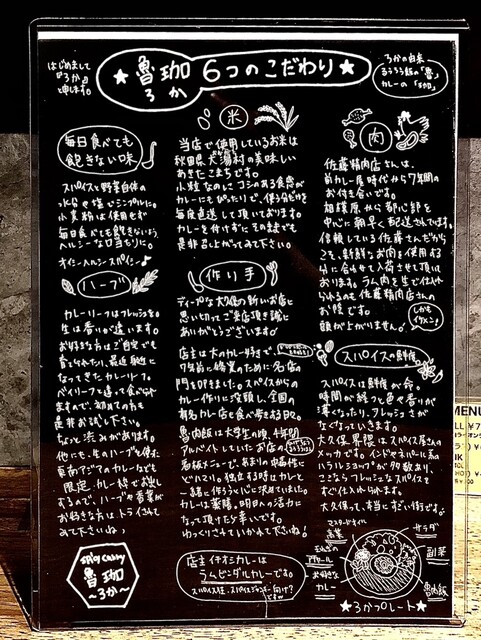 はじめまして
ろか♪
と申します。
★ 魯珈 6つのこだわり ★
ろか
ろかの由来
るうろう飯の「魯」
カレーの「珈」
毎日食べても
飽きない味
スパイスと野菜自体の
水分と塩でシンプルに。
小麦粉は使用せず
毎日食べても飽きないよう
ヘルシーなロカリーに。
オイシーヘルシースパイシー♪
ハーブ
カレーリーフはフレッシュな
生は香りが違います。
お好きな方はご自宅でも
育てられたり、最近 馴染に
なってきたカレーリーフ。
ベイリーフと違って食べられ
ますので、初めての方も
是非お試し下さい。
なっと染みがあります。
他にも、生のハーブを使った
東南アジアのカレーなども
限定カレー
するので、ハーブの香草が
お好きな方はトライされて
みて下さいね♪
SPICY CURRY
魯珈
～ろか～
米
当店で使用しているお米は
秋田県大潟村の美味しい
あきたこまちです。
小粒なのにコシのある食感が
カレーにもぴったりで、使う分だけを
毎度直送して頂いております。
カレーを付けずにそのままでも
是非召し上がってみて下さい。
作り手
ディープな大久保の新しいお店に
思い切ってご来店頂き誠に
ありがとうございます!
店主は大のカレー好きで、
7年前に修業のために名店の
門を叩きました。スパイスからの
カレー作りに没頭し、全国の
有名カレー店を食べ歩きする日々。
魯肉飯は大学生の頃、七年間
アルバイトしていたお店の
名物メニューで、あまりの中毒性に
ビハマリ。独立する時はカレーと
一緒に作ろうと心に決めていました。
カレーは薬膳。明日の活力に
なって頂けたら幸いです。
ゆっくりされていかれて下さいね!
店主イチオシカレーは
ラムビンダルカレーです。
スパイス狂、スパイスジャンキー向け?
ですw
肉
佐藤精肉店さんは、
前カレー屋時代から7年間の
お付き合いです。
相模原から都心部を
中心に朝早く配送されています。
信頼している佐藤さんだから
こそ、新鮮なお肉を使用する
分に合わせて入荷させて頂いて
おります。ラム肉を生で仕入れ
られるのも佐藤精肉店さんの
お陰です。
頭が上がりません!
しかも
イケメン♪
スパイスの鮮度
スパイスは鮮度が命。
時間が経つと色や香りが
薄くなったり、フレッシュさが
なくなっていきます。
大久保界隈はスパイス屋さんの
メッカです。インドやネパール系の
ハラルショップが多数あり、
ここならフレッシュなスパイスを
すぐ仕入れられます。
大久保って、本当にすごい街です!
マスタードオイル
高菜
サラダ
アチャール
副菜
お好きな
カレー
魯肉飯
★ろかプレート★
MENU